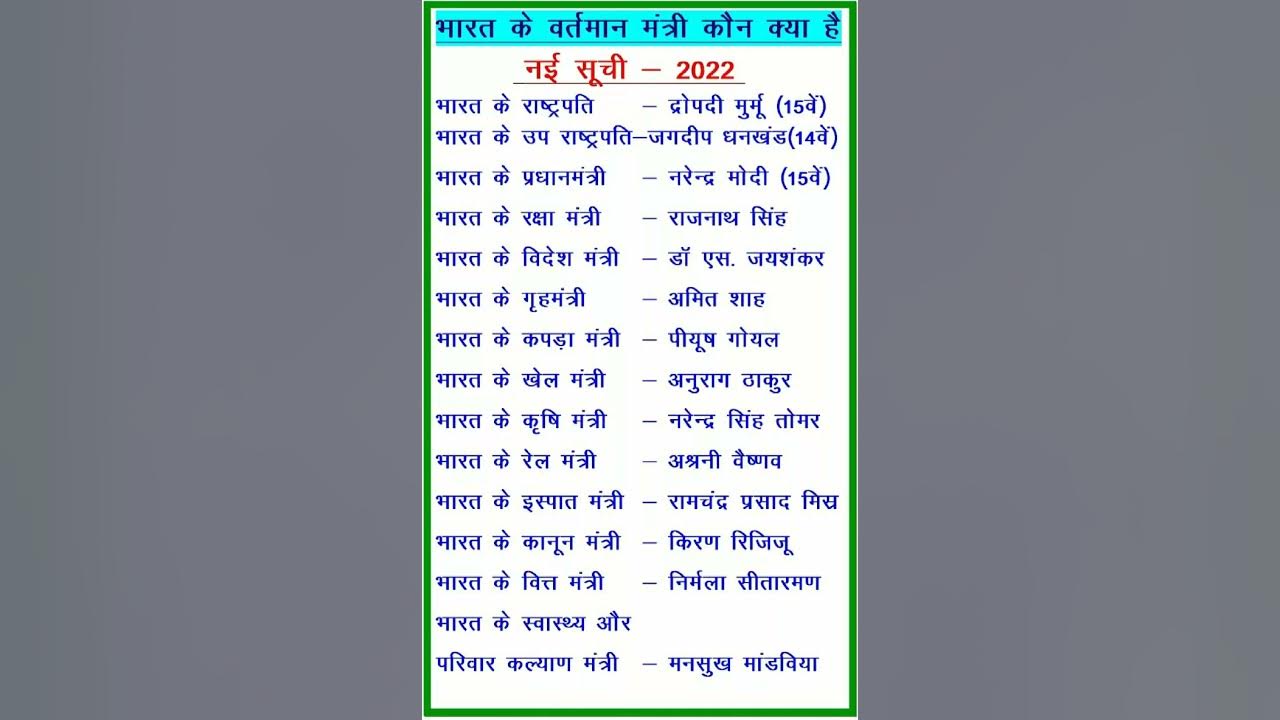 भारत के वर्तमान मंत्री कौन क्या है
नई सूची – 2022
भारत के राष्ट्रपति – द्रोपदी मुर्मू (15वें)
भारत के उप राष्ट्रपति–जगदीप धनखंड(14वें)
भारत के प्रधानमंत्री – नरेन्द्र मोदी (15वें)
भारत के रक्षा मंत्री – राजनाथ सिंह
भारत के विदेश मंत्री – डॉ एस. जयशंकर
भारत के गृहमंत्री – अमित शाह
भारत के कपड़ा मंत्री – पीयूष गोयल
भारत के खेल मंत्री – अनुराग ठाकुर
भारत के कृषि मंत्री – नरेन्द्र सिंह तोमर
भारत के रेल मंत्री – अश्रनी वैष्णव
भारत के इस्पात मंत्री – रामचंद्र प्रसाद मिस्र
भारत के कानून मंत्री – किरण रिजिजू
भारत के वित्त मंत्री – निर्मला सीतारमण
भारत के स्वास्थ्य और
परिवार कल्याण मंत्री – मनसुख मांडविया